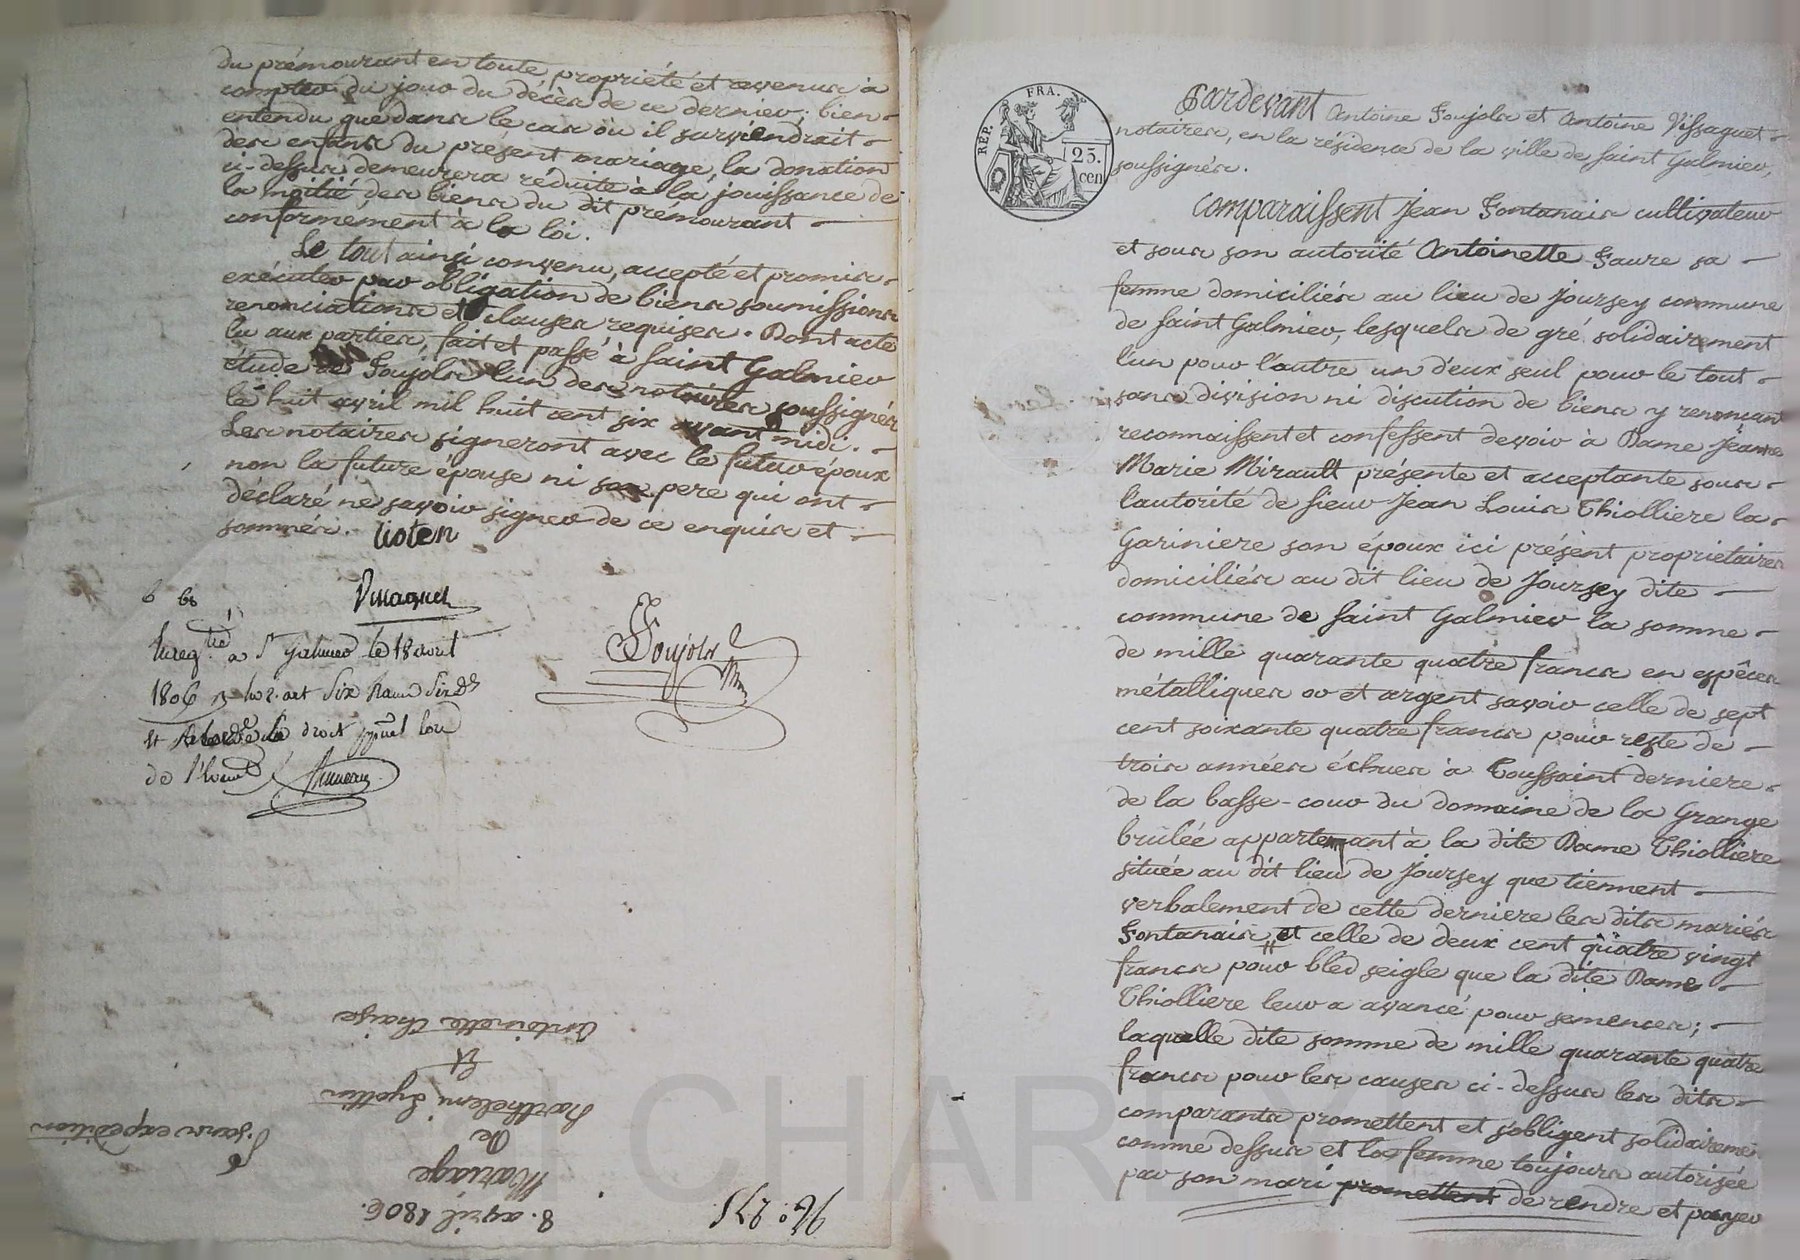 du prémourant en toute propriété et revenus à
compter du jour du décès de ce dernier; bien-
entendu que dans le cas où il surviendrait
des enfans du present mariage, la donation
ci-dessus demeurera réduite à la jouissance de
la moitié des biens du dit premourant
conformement à la loi.
Le tout ainsi convenu, accepté et promis
exécuter par obligation de biens soumissions
renonciations et clauses requises. Dont acte
lu aux parties, fait et passé à Saint Galmier
étude de Foujols l'un des notaires soussignés
le huit avril mil huit cent six avant midi.
Les notaires signeront avec le futur époux
non la future épouse ni son pere qui ont
déclaré ne savoir signer de ce enquis et
sommés. Lioten
Vissaguet
Foujols
Enreg.tré à St galmier le 18 avril
1806
droit
de l'
Antoinette Thaise
Et
Barthelemi Lyottin
De
Mariage
8. avril 1806.
sans expédition
No. 275
REP. FRA.
25.
cen
Pardevant Antoine Foujols et Antoine Vissaguet
notaires, en la résidence de la ville de Saint Galmier,
soussignés.
Comparaissent Jean Fontanais cultivateur
et sous son autorité Antoinette Faure sa
femme domiciliés au lieu de Joursey commune
de Saint Galmier, lesquels de gré solidairement
l'un pour l'autre un d'eux seul pour le tout
sans division ni discution de biens y renonçant
reconnaissent et confessent devoir à Dame Jeanne
Marie Mirault présente et acceptante sous
l'autorité de sieur Jean Louis Thiolliere la
Gariniere son époux ici présent proprietaires
domiciliés au dit lieu de Joursey dite
commune de Saint Galmier la somme
de mille quarante quatre francs en espèces
métalliques or et argent savoir celle de sept
cent soixante quatre francs pour reste de
trois années échues à Toussaint derniere
de la basse-cour du domaine de la Grange
brulée appartenant à la dite Dame Thiolliere
située au dit lieu de Joursey que tiennent
verbalement de cette derniere les dits mariés
Fontanais, et celle de deux cent quatre vingt
francs pour bled seigle que la dite Dame
Thiolliere leur a avancé pour semences;
laquelle dite somme de mille quarante quatre
francs pour les causes ci-dessus les dits
comparants promettent et s'obligent solidairement
comme dessus et la femme toujours autorisée
par son mari promettent de rendre et payer